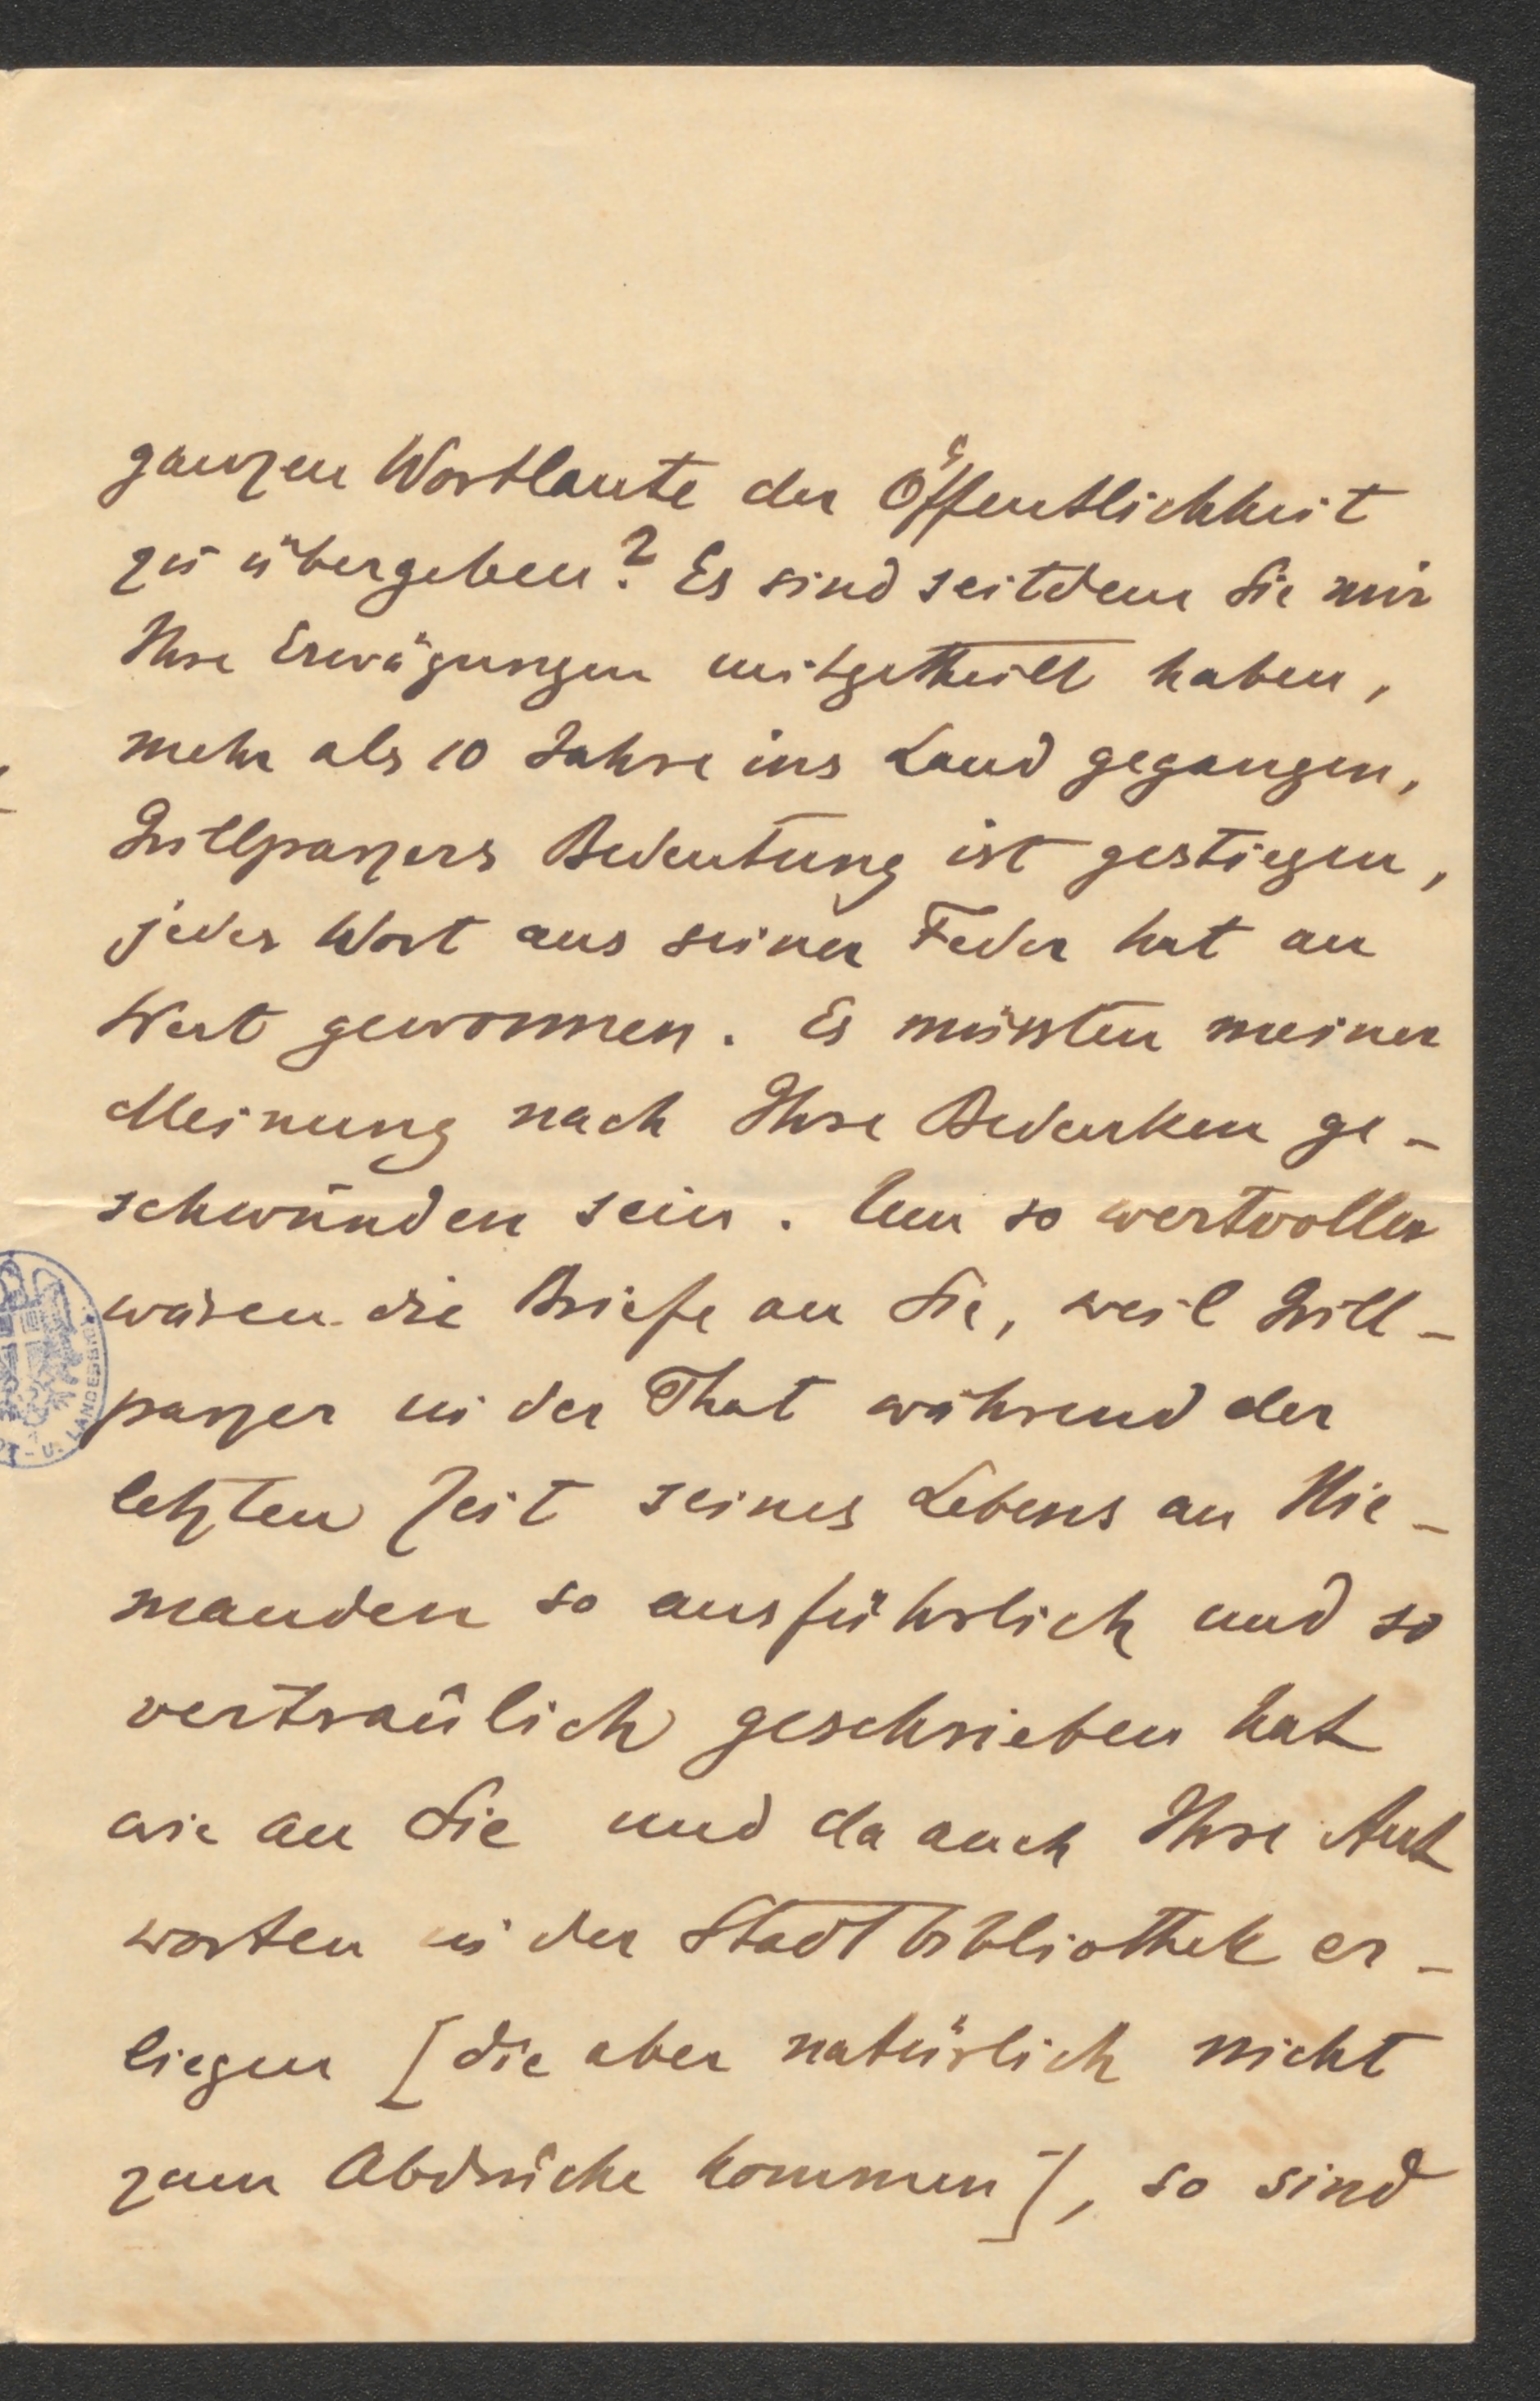 ganzen Wortlaute der Öffentlichkeit
zu übergeben? Es sind seitdem Sie mir
Ihre Erwägungen mitgetheilt haben,
mehr als 10 Jahre ins Land gegangen,
Grillparzers Bedeutung ist gestiegen,
jedes Wort aus seiner Feder hat an
Wert gewonnen. Es müssten meiner
Meinung nach Ihre Bedenken ge-
schwunden sein. Um so wertvoller
wären die Briefe an Sie, weil Grill-
parzer in der That während der
letzten Zeit seines Lebens an Nie-
manden so ausführlich und so
vertraulich geschrieben hat
wie an Sie und da auch Ihre Ant
worten in der Stadtbibliothek er-
liegen [die aber natürlich nicht
zum Abdrucke kommen], so sind
T - U. LANDESBIBL